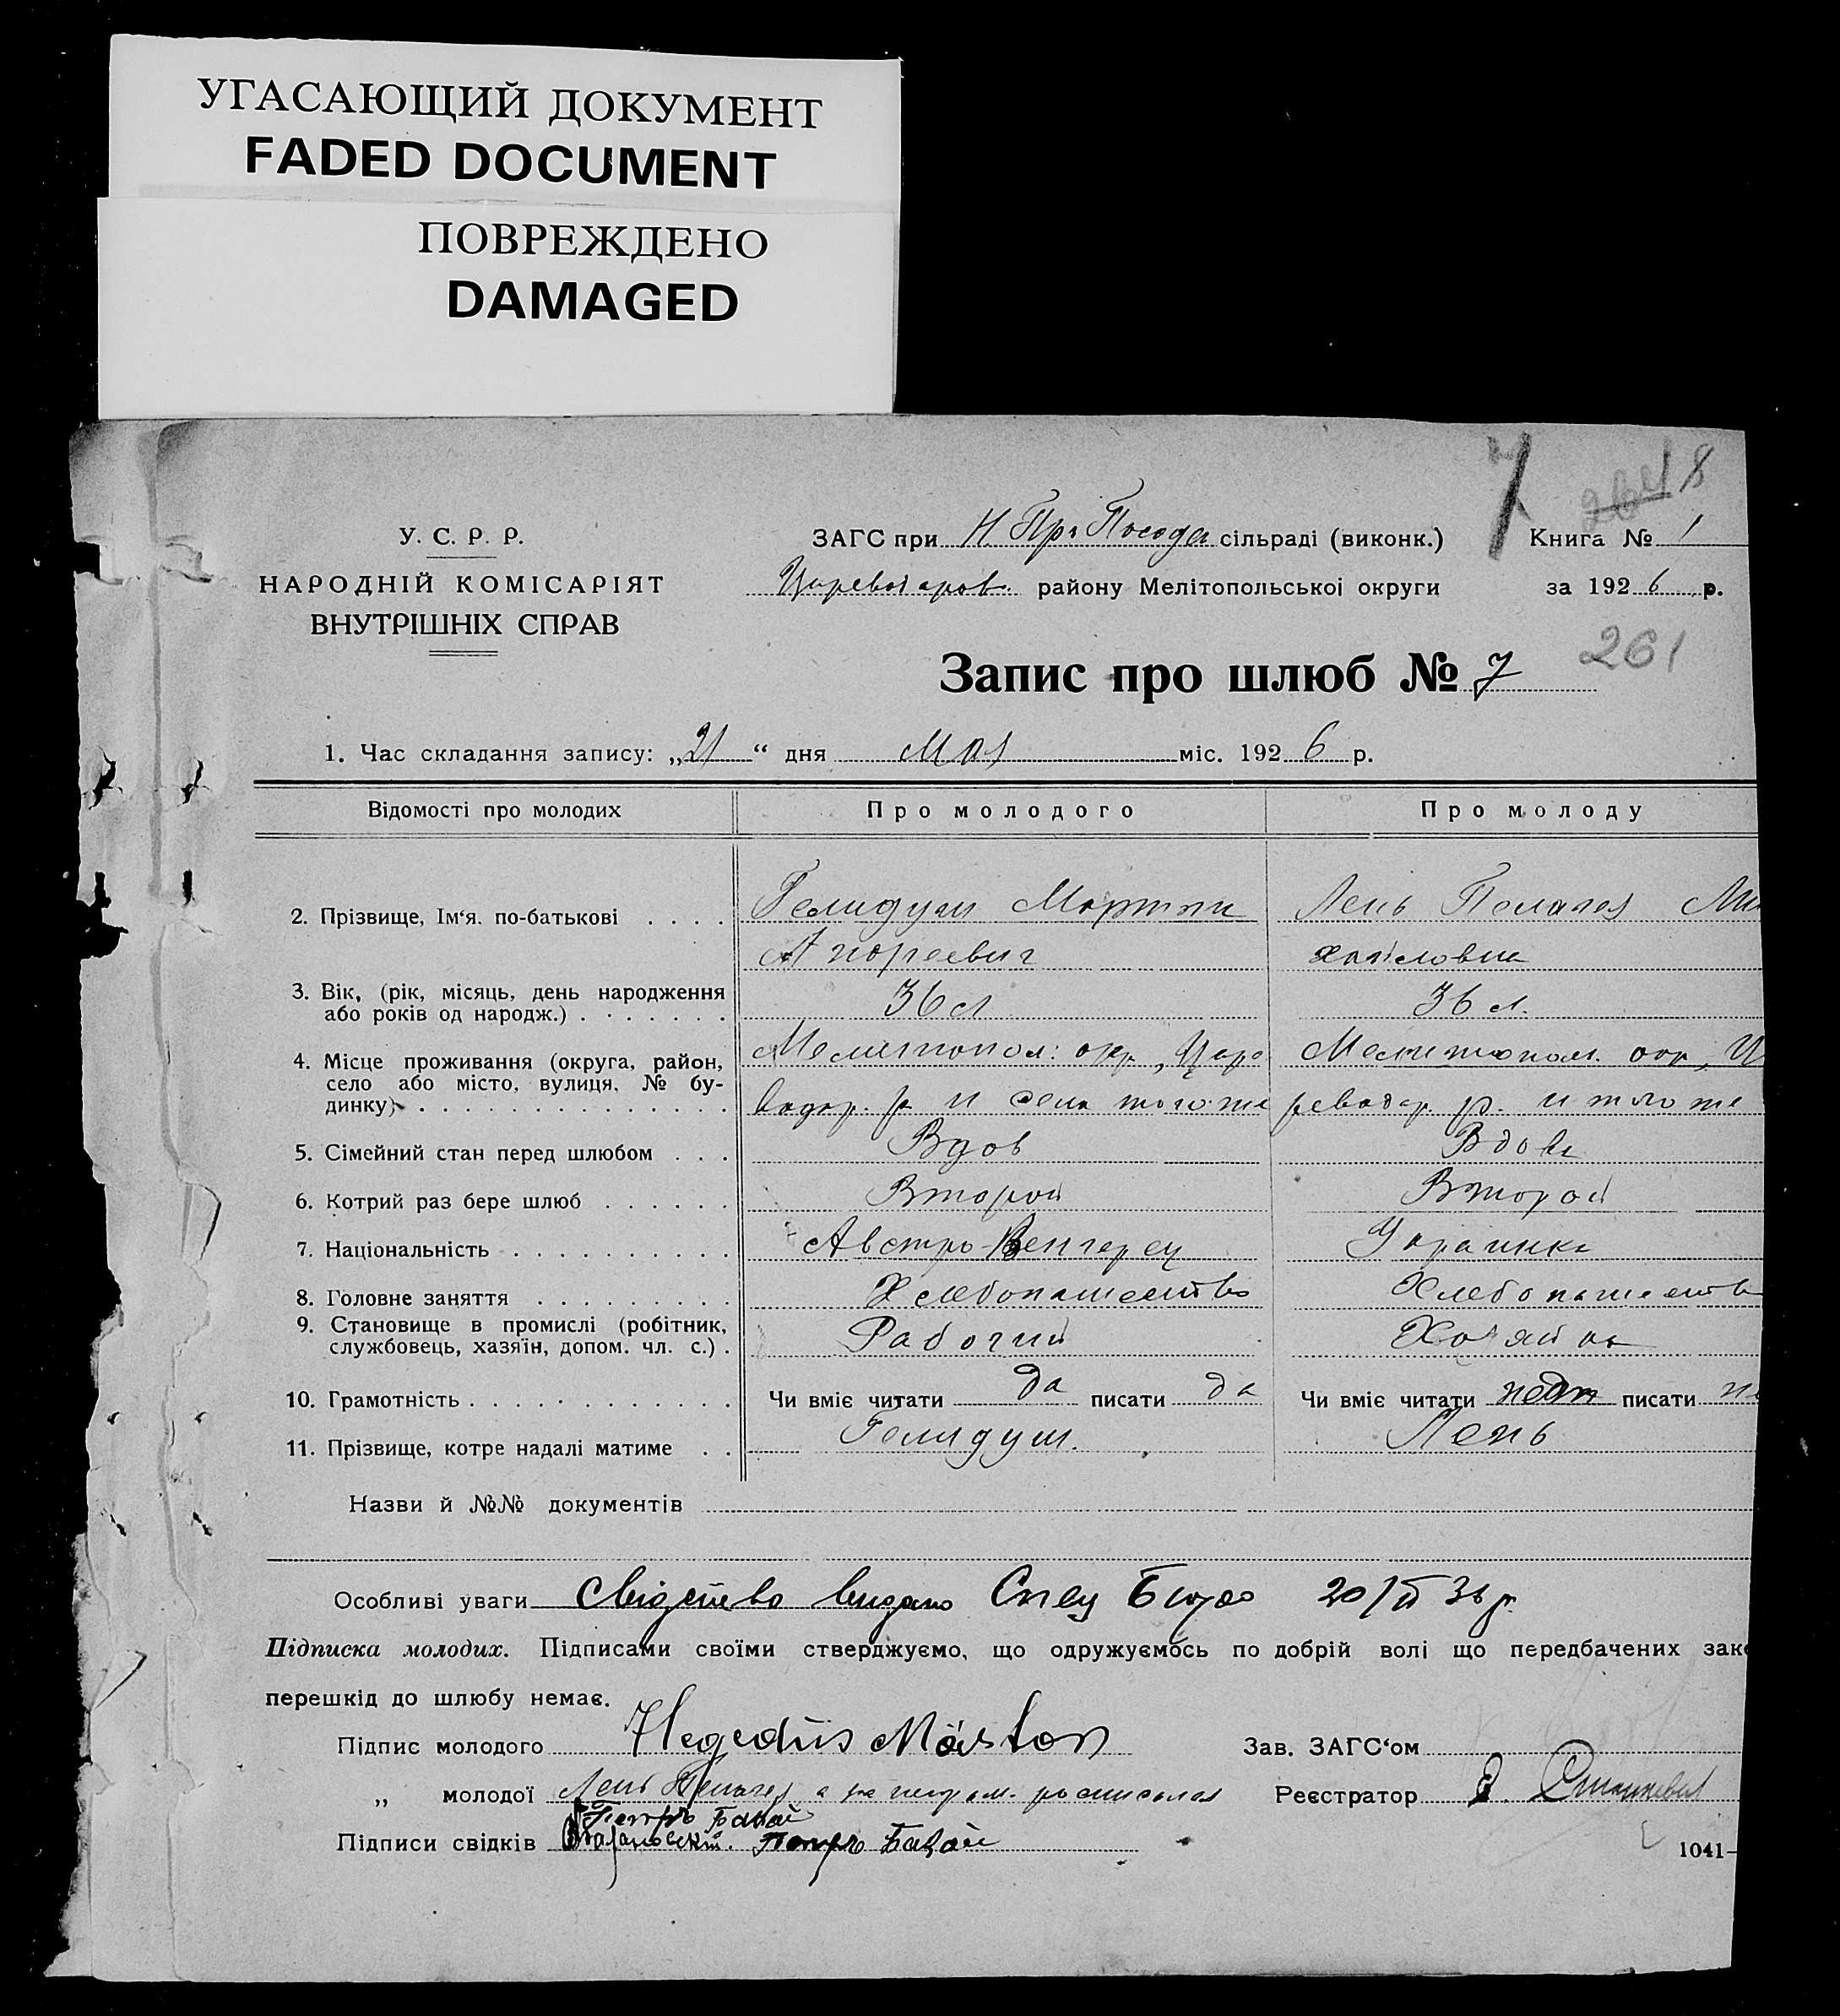 УГАСАЮЩИЙ ДОКУМЕНТ
FADED DOCUMENT
ПОВРЕЖДЕНО
DAMAGED
7 8
У. С. Р. Р.
НАРОДНІЙ КОМІСАРІЯТ
ВНУТРІШНІХ СПРАВ
ЗАГС при Н. сільраді (виконк.) Книга № 1
району Мелітопольської округи за 1926 р.
261
Запис про шлюб № 7
1. Час складання запису: „21“ дня Мая міс. 1926 р.
Відомості про молодих Про молодого Про молоду
2. Прізвище, Ім‘я. по-батькові . . . . Гелидуш Мартин Лень Пелагея Ми
Андреевич хайловна
3. Вік, (рік, місяць, день народження
або років од народж.) . . . . . . . 36 л 36 л.
4. Місце проживання (округа, район,
село або місто, вулиця, № бу-
динку) . . . . . . . . . . . . . . .
Мелитопол: окр, Царе Мелитопол. окр, Ца
водар. р и села того-же реводар. р. и того же
5. Сімейний стан перед шлюбом . . . Вдов Вдова
6. Котрий раз бере шлюб . . . . . . Второй Второй
7. Національність . . . . . . . . . . Австро-Венгерец Украинка
8. Головне заняття . . . . . . . . . Хлебопашество Хлебопашеств
9. Становище в промислі (робітник,
службовець, хазяїн, допом. чл. с.) . Рабочий Хозяйка
10. Грамотність . . . . . . . . . . . . Чи вміє читати да писати да Чи вміє читати нет писати не
11. Прізвище, котре надалі матиме . . Гелидуш. Лень
Назви й №№ документів
Особливі уваги Свідоцтво видано Спец Бюро 20/ІІ 36 р.
Підписка молодих. Підписами своїми стверджуємо, що одружуємось по добрій волі що передбачених зако
перешкід до шлюбу немає.
Підпис молодого Hegedüs Márton Зав. ЗАГС‘ом
„ молодої Лень Пелагея, а за неграм. росписался Реєстратор
Петръ Бабай
Підписи свідків Петръ Бабай
1041-